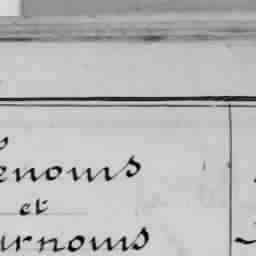 enoms
et
urnoms